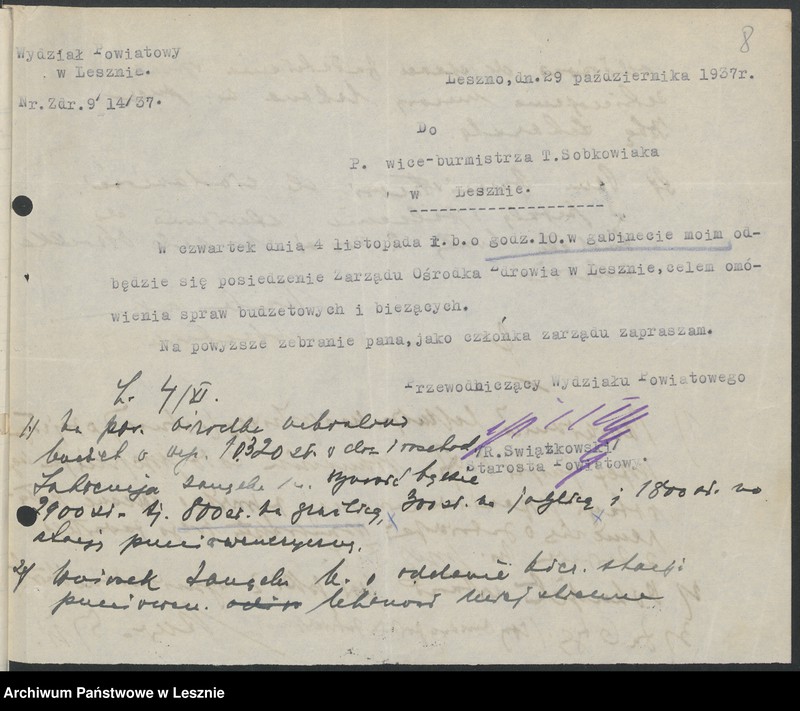 8
Wydział Powiatowy
w Lesznie.
Nr.Zdr.9/14/37.
Leszno,dn.29 października 1937r.
Do
P. wice-burmistrza T.Sobkowiaka
w Lesznie.
W czwartek dnia 4 listopada r.b.o godz.10.w gabinecie moim od-
będzie się posiedzenie Zarządu Ośrodka Zdrowia w Lesznie,celem omó-
wienia spraw budzetowych i biezących.
Na powyższe zebranie pana,jako członka zarządu zapraszam.
Przewodniczący Wydziału Powiatowego
/R.Świątkowski/
Starosta Powiatowy.
4/XI.
1/ na pos. ośrodka uchwalono
budżet o wys. 10.320 zł. w doch. i rozchod.
2900 zł. tj. 800 zł. na gruźlicę, 300 zł. na jaglicę i 1800 zł. na
stację przeciwweneryczną.
2/ Wniosek o oddanie kier. stacji